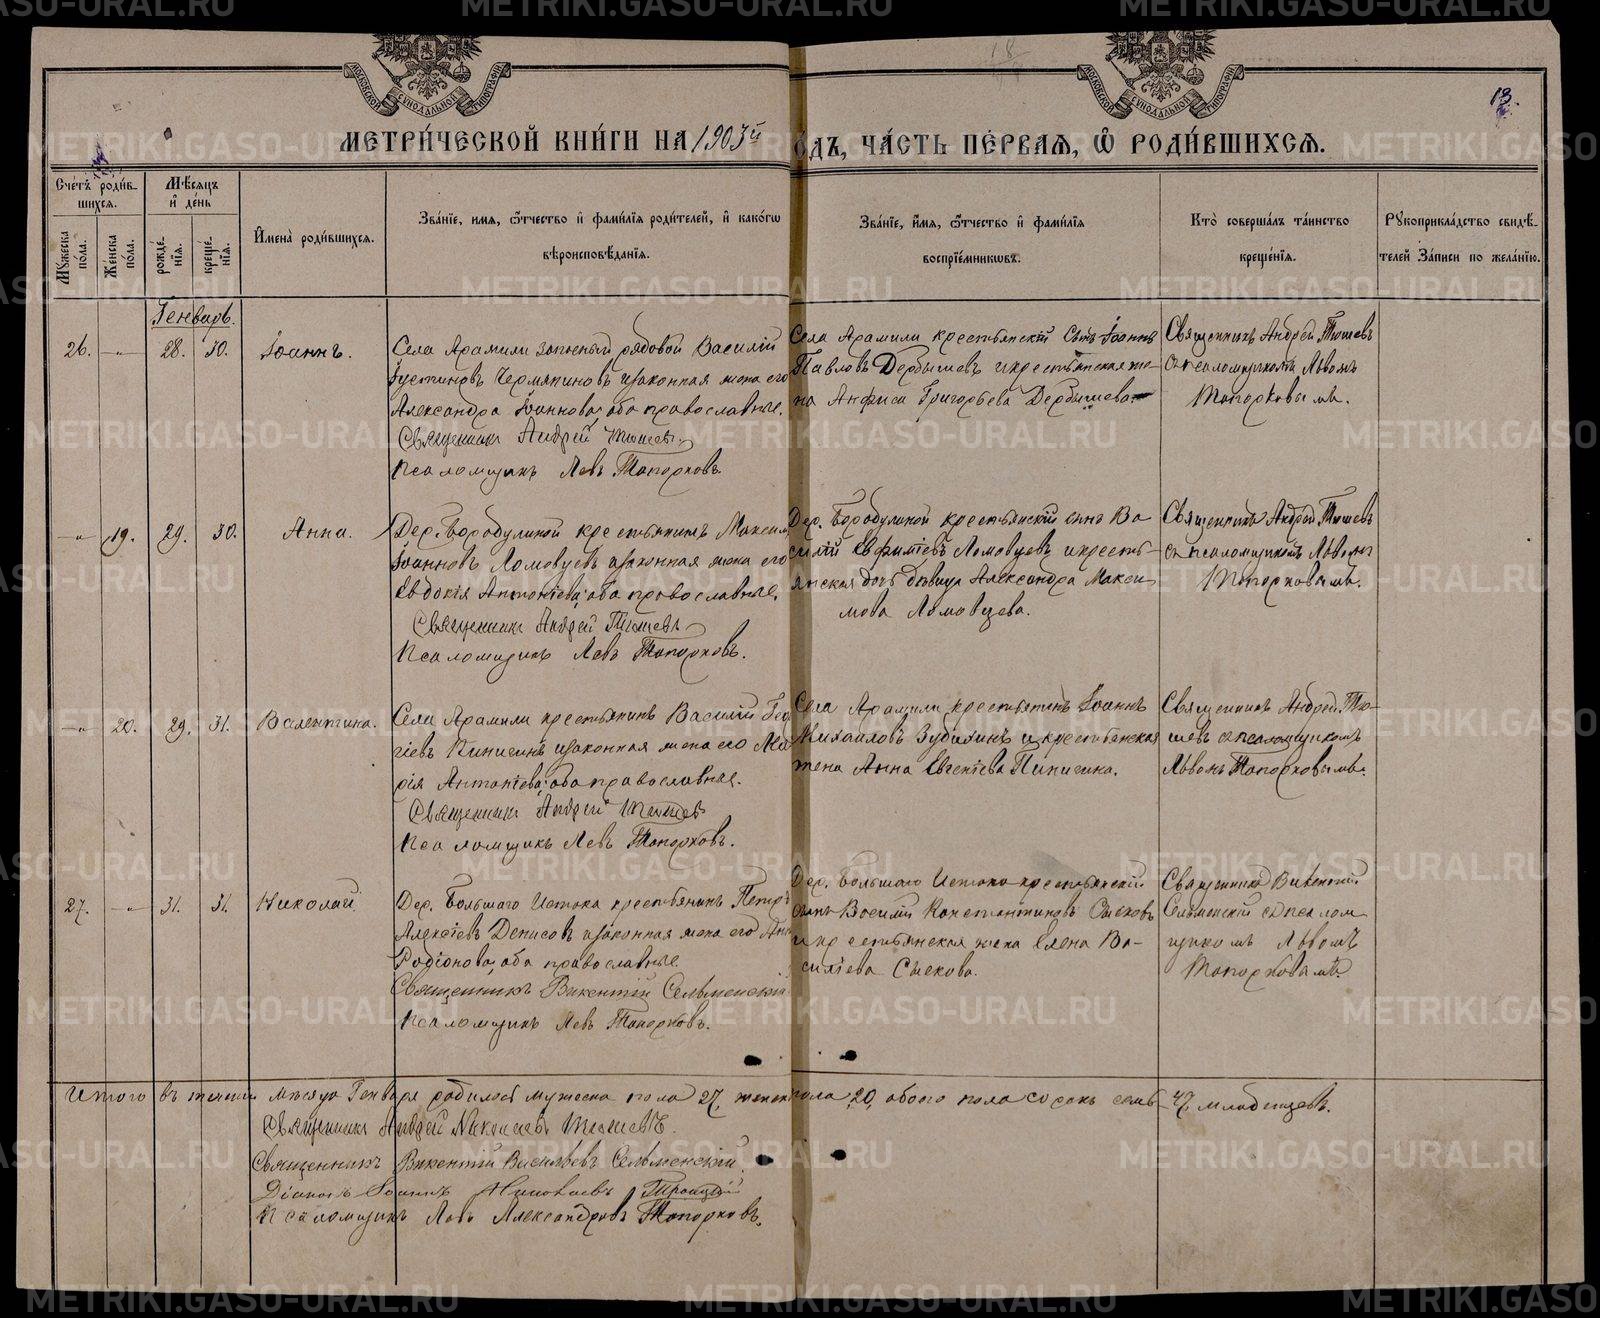 МОСКОВСКОЙ СѴНОДАЛЬНОЙ ТИПОГРАФІИ
МОСКОВСКОЙ СѴНОДАЛЬНОЙ ТИПОГРАФІИ
18.
МЕТРИ́ЧЕСКОЙ КНИ́ГИ НА 1903й
ОДЪ, ЧА́СТЬ ПЕ́РВАѦ, Ѽ РОДИ́ВШИХСѦ.
Сче́тъ роди́в-
шихсѧ.
Мѣ́сѧцъ
и҆ де́нь
Мꙋ́жеска
по́ла.
Же́нска
по́ла.
рожде́-
нїѧ.
креще́-
нїѧ.
И҆мена̀ роди́вшихсѧ.
Зва́нїе, имѧ, ѻ҆́тчество и҆ фами́лїѧ роди́телей, и҆ како́гѡ
вѣроисповѣ́данїѧ.
Зва́нїе, и҆́мѧ, ѻ҆́тчество и҆ фами́лїѧ
воспрїе́мникѡвъ.
Кто̀ соверша́лъ та́инство
креще́нїѧ.
Рꙋкоприкла́дство свидѣ́-
телей за́писи по жела́нїю.
Генварь.
26. -"- 28. 30. Іоаннъ.
Села Арамили запасный рядовой Василій
Іустиновъ Чермянинов и законная жена его
Александра Іоаннова; оба православные.
Священникъ Андрей Тюшевъ
Псаломщикъ Левъ Топорковъ.
Села Арамили крестьянскій сынъ Іоаннъ
Павловъ Дербышевъ и крестьянская же-
на Анфиса Григорьева Дербышева
Священникъ Андрей Тюшевъ
съ псаломщикомъ Львомъ
Топорковымъ.
-"- 19. 29. 30. Анна.
Дер. Бородулиной крестьянинъ Максимъ
Іоанновъ Ломовцевъ и законная жена его
Евдокія Антонієва; оба православные.
Священникъ Андрей Тюшевъ
Псаломщикъ Левъ Топорковъ.
Дер. Бородулиной крестьянскій сынъ Ва-
силій Евфиміевъ Ломовцевъ и кресть-
янская дочь девица Александра Макси-
мова Ломовцева.
Священникъ Андрей Тюшевъ
съ псаломщикомъ Львомъ
Топорковымъ.
-"- 20. 29. 31. Валентина.
Села Арамили крестьянинъ Василій Геор
гіевъ Киписинъ и законная жена его Ма
рія Антоніева; оба православные.
Священникъ Андрей Тюшевъ
Псаломщикъ Левъ Топорковъ.
Села Арамили крестьянинъ Іоаннъ
Михаиловъ Зубихинъ и крестьянская
жена Анна Евгеніева
Священникъ Андрей Тю-
шевъ съ псаломщикомъ
Львомъ Топорковымъ.
27. -"- 31. 31. Николай.
Дер. Большаго Истока крестьянинъ Петръ
Алексіевъ Денисовъ и законная жена его Анна
Родіонова; оба православные.
Священникъ Викентій Сельменскій
Псаломщикъ Левъ Топорковъ.
Дер. Большаго Истока крестьянскій
сынъ Василій Константиновъ Сысковъ
и крестьянская жена Елена Ва-
силіева Сыскова.
Священникъ Викентій
Сельменскій съ псалом
щикомъ Львомъ
Топорковымъ.
Итого въ теченіи месяца Генваря родилось мужеска пола 27, женска пола 20, обоего пола сорокъ семь 47 младенцевъ.
Священникъ Андрей Николаевъ Тюшевъ.
Священникъ Викентій Васильевъ Сельменскій.
Діаконъ Іоаннъ Николаевъ Троицкій
Псаломщикъ Левъ Александровъ Топорковъ.
METRIKI.GASO-URAL.RU